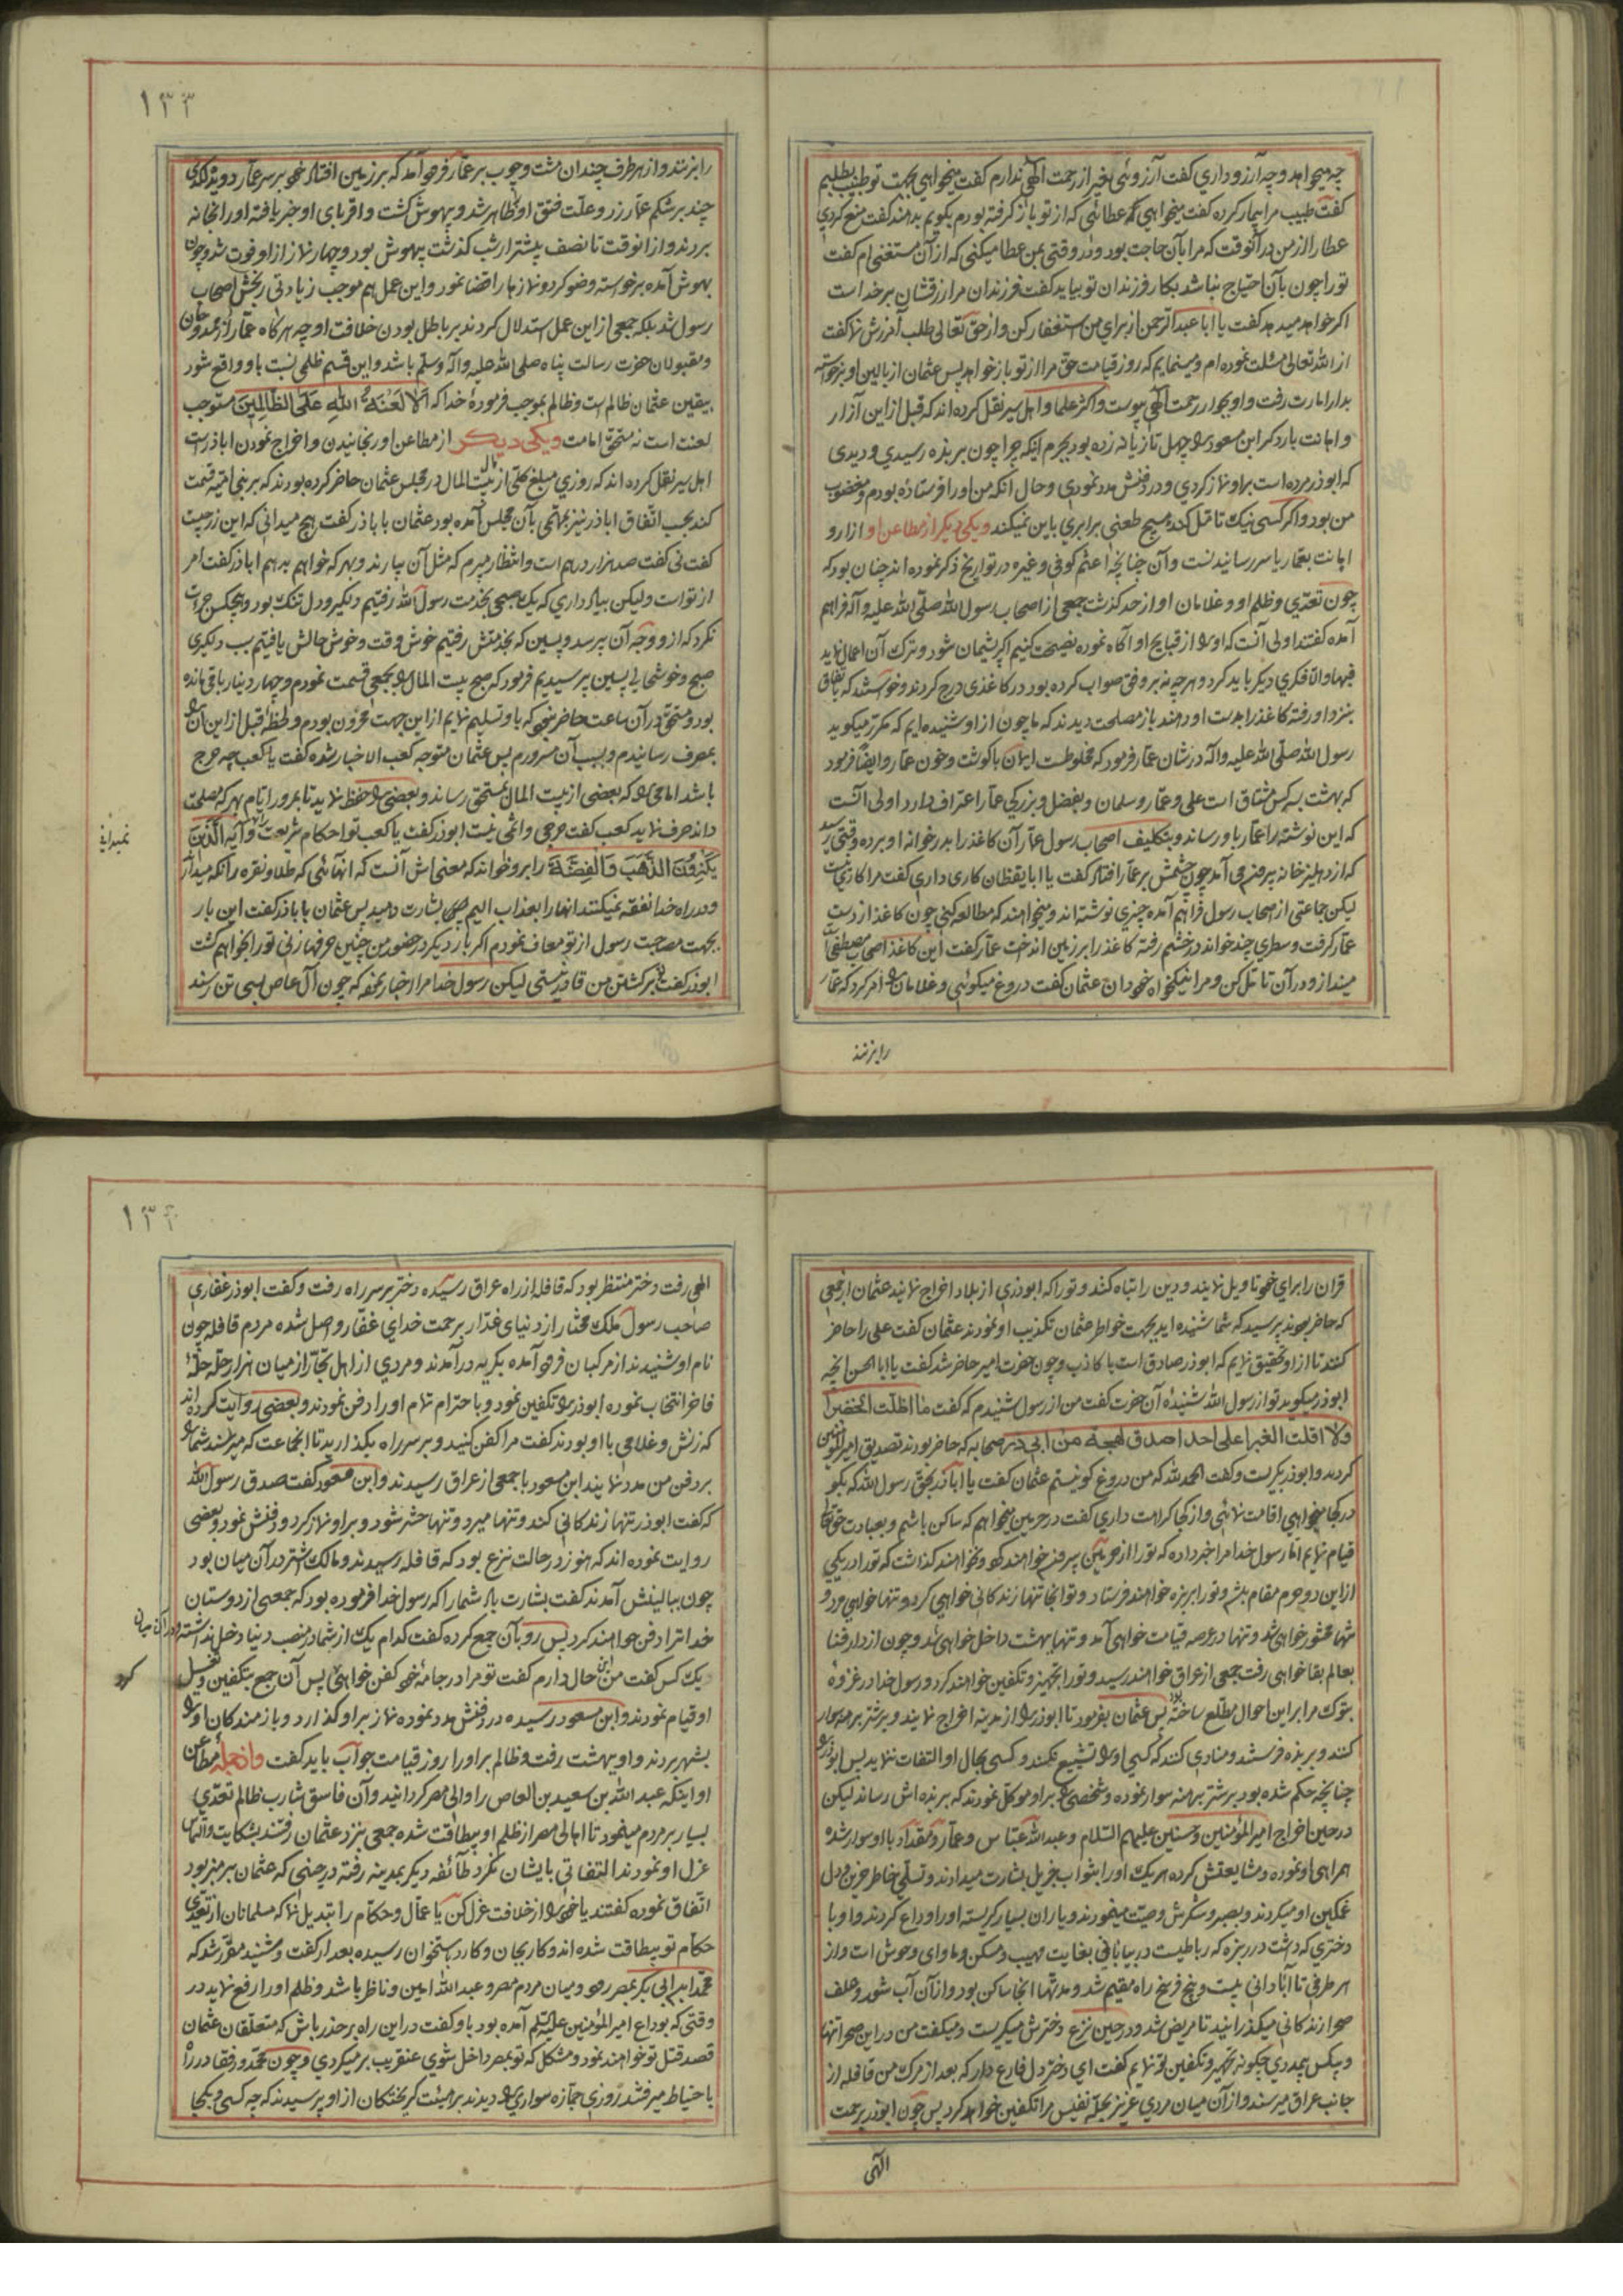 چه میخواهد و چه آرزو داری کفت آرزوئی بغیر از رحمت الهی ندارم کفت میخواهی بجهت تو طبیب بطلبیم
کفت طبیب مرا بیمار کرده کفت میخواهی که عطائی که از تو باز کرفته بودم بکویم بدهند کفت منع کردی
عطا را از من در آنوقت که مرا بآن حاجت بود و در وقتی بمن عطا میکنی که از آن مستغنی ام کفت
تو را چون بآن احتیاج نباشد بکار فرزندان تو بیاید کفت فرزندان مرا رزقشان بر خدا است
اکر خواهد میدهد کفت یا ابا عبدالرحمن از برای من استغفار کن و از حق تعالی طلب آمرزش نما کفت
از الله تعالی مسئلت نموده ام و مینمایم که روز قیامت حق مرا از تو باز خواهد پس عثمان از بالین او برخواسته
بدار امارت رفت و او بجوار رحمت الهی پیوست و اکثر علما و اهل سیر نقل کرده اند که قبل از این آزار
و اهانت بارد کر ابن مسعود را چهل تازیانه زده بود بجرم اینکه چرا چون بربزه رسیدی و دیدی
که ابوذر مرده است براو نماز کردی و در دفنش مدد نمودی و حال انکه من او را فرستاده بودم و مغضوب
من بود و اکر کسی نیک تامل کند هیچ طعنی برابری باین نمیکند ویکی دیکر از مطاعن او ازار و
اهانت بعمار یاسر رسانیدنست و آن چنانچه اعثم کوفی و غیره در تواریخ ذکر نموده اند چنان بود که
چون تعدی و ظلم او و غلامان او از حد کذشت جمعی از اصحاب رسول الله صلی الله علیه و آله فراهم
آمده کفتند اولی آنست که او را از قبایح او آکاه نموده نصیحت کنیم اکر پشیمان شود و ترک آن اعمال نماید
فبها و الا فکری دیکر باید کرد و هر چه نه بر وفق صواب کرده بود در کاغذی درج کردند و خواستند که باتفاق
بنزد او رفته کاغذ را بدست او دهند باز مصلحت دیدند که ما چون از او شنیده ایم که مکرر میکوید
رسول الله صلی الله علیه و آله در شان عمار فرمود که مخلوطست ایمان با کوشت و خون عمار و ایضا فرمود
که بهشت بسه کس مشتاق است علی و عمار و سلمان و بفضل و بزرکی عمار اعتراف دارد اولی آنست
که این نوشته را عمار باو رساند و بتکلیف اصحاب رسول عمار آن کاغذ را بدر خوانه او برده وقتی رسید
که از دهلیز خانه بیرون می آمد چون چشمش بر عمار افتاد کفت یا ابا یقظان کاری داری کفت مرا کاری نیست
لیکن جماعتی از صحاب رسول فراهم آمده چیزی نوشته اند و میخواهند که مطالعه کنی چون کاغذ از دست
عمار کرفت و سطری چند خواند در خشم رفته کاغذ را بر زمین انداخت عمار کفت این کاغذ اصحاب مصطفی است
مینداز و در آن تامل کن و مرا نیکخواه خود دان عثمان کفت دروغ میکوئی و غلامان را امر کرد که عمار
رابزنند
١٣٣
رابزنند و از هر طرف چندان مشت و چوب بر عمار فرود آمد که بر زمین افتاد خود بر سر عمار دوید لکدی
چند بر شکم عمار زد و علت فتق او ظاهر شد و بیهوش کشت و اقربای او خبر یافته او را بخانه
بردند و از انوقت تا نصف بیشتر از شب کذشت بیهوش بود و چهار نماز از او فوت شد و چون
بهوش آمده برخواسته وضو کرد و نمازها را قضا نمود و این عمل هم موجب زیادتی رنجش اصحاب
رسول شد بلکه جمعی از این عمل استدلال کردند بر باطل بودن خلافت او چه هر کاه عمار از ممدوحان
و مقبولان حضرت رسالت پناه صلی الله علیه و آله وسلم باشد و این قسم ظلمی نسبت باو واقع شود
بیقین عثمان ظالم است و ظالم بموجب فرموده خدا که الا لعنة الله علی الظالمین مستوجب
لعنت است نه مستحق امامت ویکی دیکر از مطاعن او رنجانیدن و اخراج نمودن اباذر است
اهل سیر نقل کرده اند که روزی مبلغ کلی از بیت المال در مجلس عثمان حاضر کرده بودند که بر بنی امیه قسمت
کند بحسب اتفاق اباذر نیز بمهمی بآن مجلس آمده بود عثمان با باذر کفت هیچ میدانی که این زر چیست
کفت نی کفت صد هزار درهم است و انتظار میبرم که مثل آن بیارند و بهر که خواهم بدهم اباذر کفت امر
از تو است و لیکن بیاد داری که یک صبحی بخدمت رسول الله رفتیم دلکیر و دل تنک بود و هیچکس جرات
نکرد که از و وجه آن پرسد و پسین که بخدمتش رفتیم خوش وقت و خوش حالش یافتیم سبب دلکیری
صبح و خوشحالی پسین پرسیدیم فرمود که صبح بیت المال را بجمعی قسمت نمودم و چهار دینار باقی مانده
بود و مستحق در آن ساعت حاضر نبود که باو تسلیم نمایم از این جهت محزون بودم و لحظه قبل از این آن را
بمصرف رسانیدم و بسبب آن مسرورم پس عثمان متوجه کعب الاخبار شده کفت یا کعب چه حرج
باشد امامی را که بعضی از بیت المال بمستحق رساند و بعضی را حفظ نماید تا بمرور ایام بهر که مصلحت
داند صرف نماید کعب کفت حرجی و اثمی نیست ابوذر کفت یا کعب تو احکام شریعت را چه دانی و آیه الذین
نمیدانی
یکنزون الذهب و الفضة را برو خواند که معنی اش آنست که انهائی که طلا و نقره را نکه میدارند
و در راه خدا نفقه نمیکنند انها را بعذاب الیم بشارت دهید پس عثمان با باذر کفت این بار
بجهت مصاحبت رسول از تو معاف نمودم اکر بار دیکر در حضور من چنین حرفها زنی تو را بخواهم کشت
ابوذر کفت بر کشتن من قادر نیستی لیکن رسول خدا مرا خبار نموده که چون آل عاص بسی تن رسند
قران را برای خود تاویل نمایند و دین را تباه کنند و تو را که ابوذری از بلاد اخراج نمایند عثمان از جمعی
که حاضر بودند پرسید که شما شنیده اید بجهت خواطر عثمان تکذیب او نمودند عثمان کفت علی را حاضر
کنند تا از او تحقیق نمایم که ابوذر صادق است یا کاذب و چون حضرت امیر حاضر شد کفت یا ابا الحسن انچه
ابوذر میکوید تو از رسول الله شنیده آن حضرت کفت من از رسول شنیدم که کفت ما اظلت الخضرا
ولا اقلت الغبرا علی احد اصدق لهجة من ابی ذر صحابه که حاضر بودند تصدیق امیرالمومنین
کردند و ابوذر بکریست و کفت الحمد لله که من دروغ کو نیستم عثمان کفت یا اباذر بحق رسول الله که بکو
در کجا میخواهی اقامت نمائی و از کجا کراهت داری کفت در حرمین میخواهم که ساکن باشم و بعبادت حق تعالی
قیام نمایم اما رسول خدا مرا خبر داده که تو را از حرمین بیرون خواهند کرد و نخواهند کذاشت که تو را در یکی
از این دو حرم مقام باشد و تو را بربزه خواهند فرستاد و تو انجا تنها زندکانی خواهی کرد و تنها خواهی مرد و
تنها محشور خواهی شد و تنها در عرصه قیامت خواهی آمد و تنها بهشت داخل خواهی شد و چون از دار فنا
بعالم بقا خواهی رفت جمعی از عراق خواهند رسید و تو را تجهیز و تکفین خواهند کرد و رسول خدا در غزوه
تبوک مرا بر این احوال مطلع ساخته بود پس عثمان بفرمود تا ابوذر را از مدینه اخراج نمایند و بر شتر برهنه سوار
کنند و بربزه فرستند و منادی کنند که کسی او را تشییع نکند و کسی بحال او التفات ننماید پس ابوذر را
چنانچه حکم شده بود بر شتر برهنه سوار نموده و شخصی را براو موکل نمودند که بربزه اش رساند لیکن
در حین اخراج امیرالمؤمنین و حسنین علیهم السلام و عبدالله عباس و عمار و مقداد با او سوار شده
همراهی او نموده و مشایعتش کرده هر یک او را بثواب جزیل بشارت میدادند و تسلی خاطر حزین و دل
غمکین او میکردند و بصبر و شکرش وصیت مینمودند و یاران بسیار کریسته او را وداع کردند و او با
دختری که داشت در ربزه که رباطیست در بیابانی بغایت مهیب و مسکن و ماوای وحوش است و از
هر طرفی تا آبادانی بیست و پنج فرسخ راه مقیم شد و مدتها انجا ساکن بود و از آن آب شور و علف
صحرا زندکانی میکذرانید تا مریض شد و در حین نزع دخترش میکریست و میکفت من در این صحرا تنها
و بیکس بیمددی چکونه تجهیز و تکفین تو نمایم کفت ای دختر دل فارغ دار که بعد از مرک من قافله از
جانب عراق میرسند و از آن میان مردی عزیز بحله نفیس مرا تکفین خواهد کرد پس چون ابوذر برحمت
الهی
١٣٤
الهی رفت دختر منتظر بود که قافله از راه عراق رسیده دختر بر سر راه رفت و کفت ابوذر غفاری
صاحب رسول ملک مختار از دنیای غدار برحمت خدای غفار واصل شده مردم قافله چون
نام او شنیدند از مرکبان فرود آمده بکریه درآمدند و مردی از اهل تجار از میان هزار حله حله
فاخر انتخاب نموده ابوذر را تکفین نمود و با احترام تمام او را دفن نمودند و بعضی روایت کرده اند
که زنش و غلامی با او بودند کفت مرا کفن کنید و بر سر راه بکذارید تا انجماعت که میرسند شما را
بر دفن من مدد نمایند ابن مسعود با جمعی از عراق رسیدند و ابن مسعود کفت صدق رسول الله
که کفت ابوذر تنها زندکانی کند و تنها میرد و تنها حشر شود و براو نماز کرد و دفنش نمود و بعضی
روایت نموده اند که هنوز در حالت نزع بود که قافله رسیدند و مالک اشتر در آن میان بود
چون ببالینش آمدند کفت بشارت باد شما را که رسول خدا فرموده بود که جمعی از دوستان
خدا ترا دفن خواهند کرد پس رو بآن جمع کرده کفت کدام یک از شما در منصب دنیا دخل نداشته
و در آن میان
یک کس کفت من این حال دارم کفت تو مرا در جامه خود کفن خواهی کرد پس آن جمع بتکفین و غسل
او قیام نمودند و ابن مسعود رسیده در دفنش مدد نموده نماز براو کذارد و بازمندکان او را
بشهر بردند و او ببهشت رفت و ظالم براو را روز قیامت جواب باید کفت و از جمله مطاعن
او اینکه عبد الله بن سعید بن العاص را والی مصر کردانید و آن فاسق شارب ظالم تعدی
بسیار بر مردم مینمود تا اهالی مصر از ظلم او بیطاقت شده جمعی بنزد عثمان رفتند بشکایت و التماس
عزل او نمودند التفاتی بایشان نکرد طائفه دیکر بمدینه رفته در حینی که عثمان بر منبر بود
اتفاق نموده کفتند یا خود را از خلافت عزل کن یا عمال و حکام را تبدیل نما که مسلمانان از تعدی
حکام تو بیطاقت شده اند و کار بجان و کارد باستخوان رسیده بعد از کفت و شنید مقرر شد که
محمد ابن ابی بکر بمصر رود و میان مردم مصر و عبدالله امین و ناظر باشد و ظلم او را رفع نماید در
وقتی که بوداع امیرالمؤمنین علیه السلم آمده بود باو کفت در این راه بر حذر باش که متعلقان عثمان
قصد قتل تو خواهند نمود و مشکل که تو بمصر داخل شوی عنقریب بر میکردی و چون محمد و رفقا در راه
با حتیاط میرفتند روزی جمازه سواری را دیدند بر هیئت کریختکان از او پرسیدند که چه کسی و بکجا